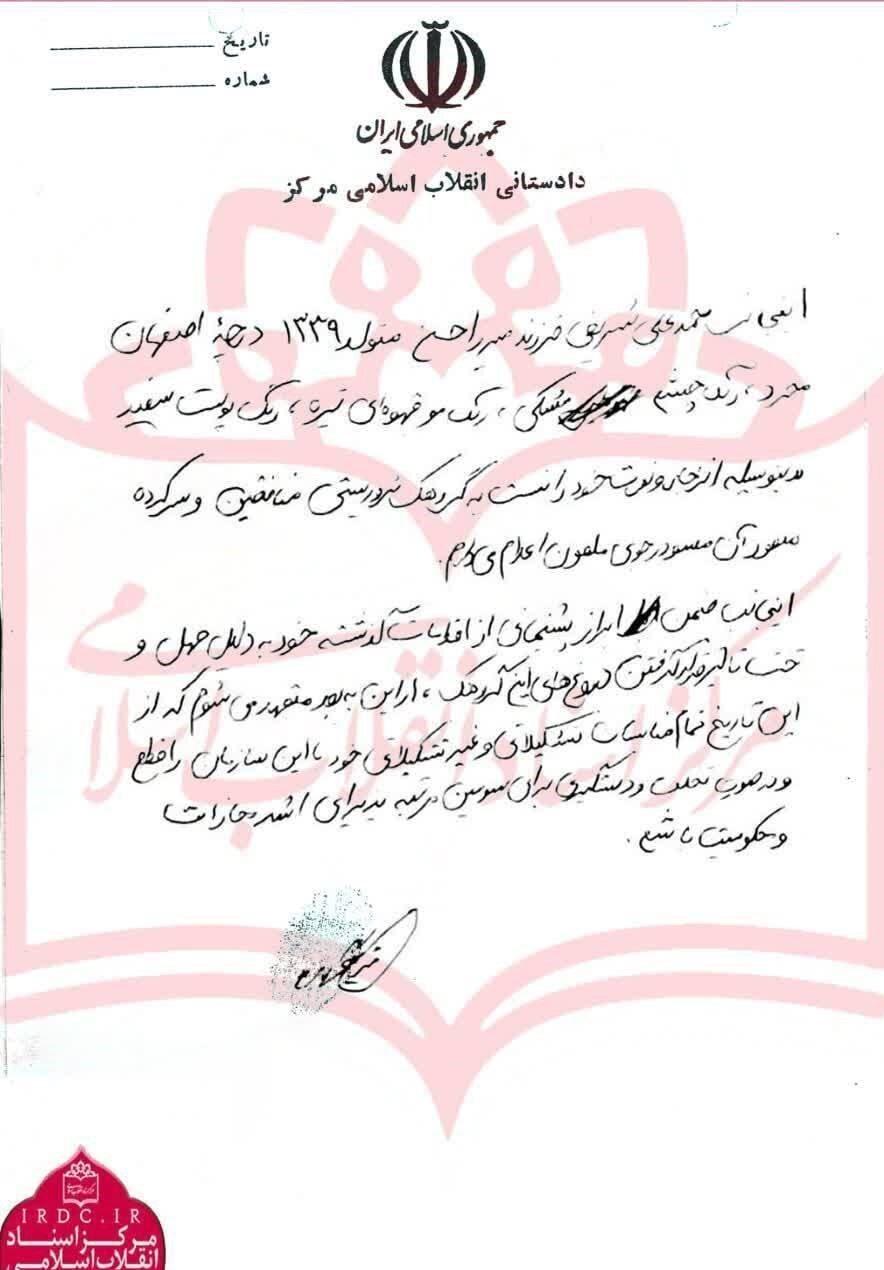 تاریخ
شماره
جمهوری اسلامی ایران
دادستانی انقلاب اسلامی مرکز
اینجانب محمدعلی شریفی فرزند میرزا حسن متولد ۱۳۳۹ درچهٔ اصفهان
مجرد، رنگ چشم مشکی، رنگ مو قهوه‌ای تیره، رنگ پوست سفید
بدینوسیله انزجار و نفرت خود را نسبت به گروهک تروریستی منافقین و سرکرده
آن مسعود رجوی ملعون اعلام می‌دارم.
اینجانب ضمن ابراز پشیمانی از اقدامات گذشته خود به دلیل جهل و
تحت تاثیر قرار گرفتن دروغهای این گروهک، از این به بعد متعهد می‌شوم که از
این تاریخ تمام مناسبات تشکیلاتی و غیر تشکیلاتی خود با این سازمان را قطع
و در صورت تخلف و دستگیری برای سومین مرتبه پذیرای اشد مجازات
و محکومیت باشم.
مرکز اسناد انقلاب اسلامی
IRDC.IR
مرکز اسناد
انقلاب اسلامی